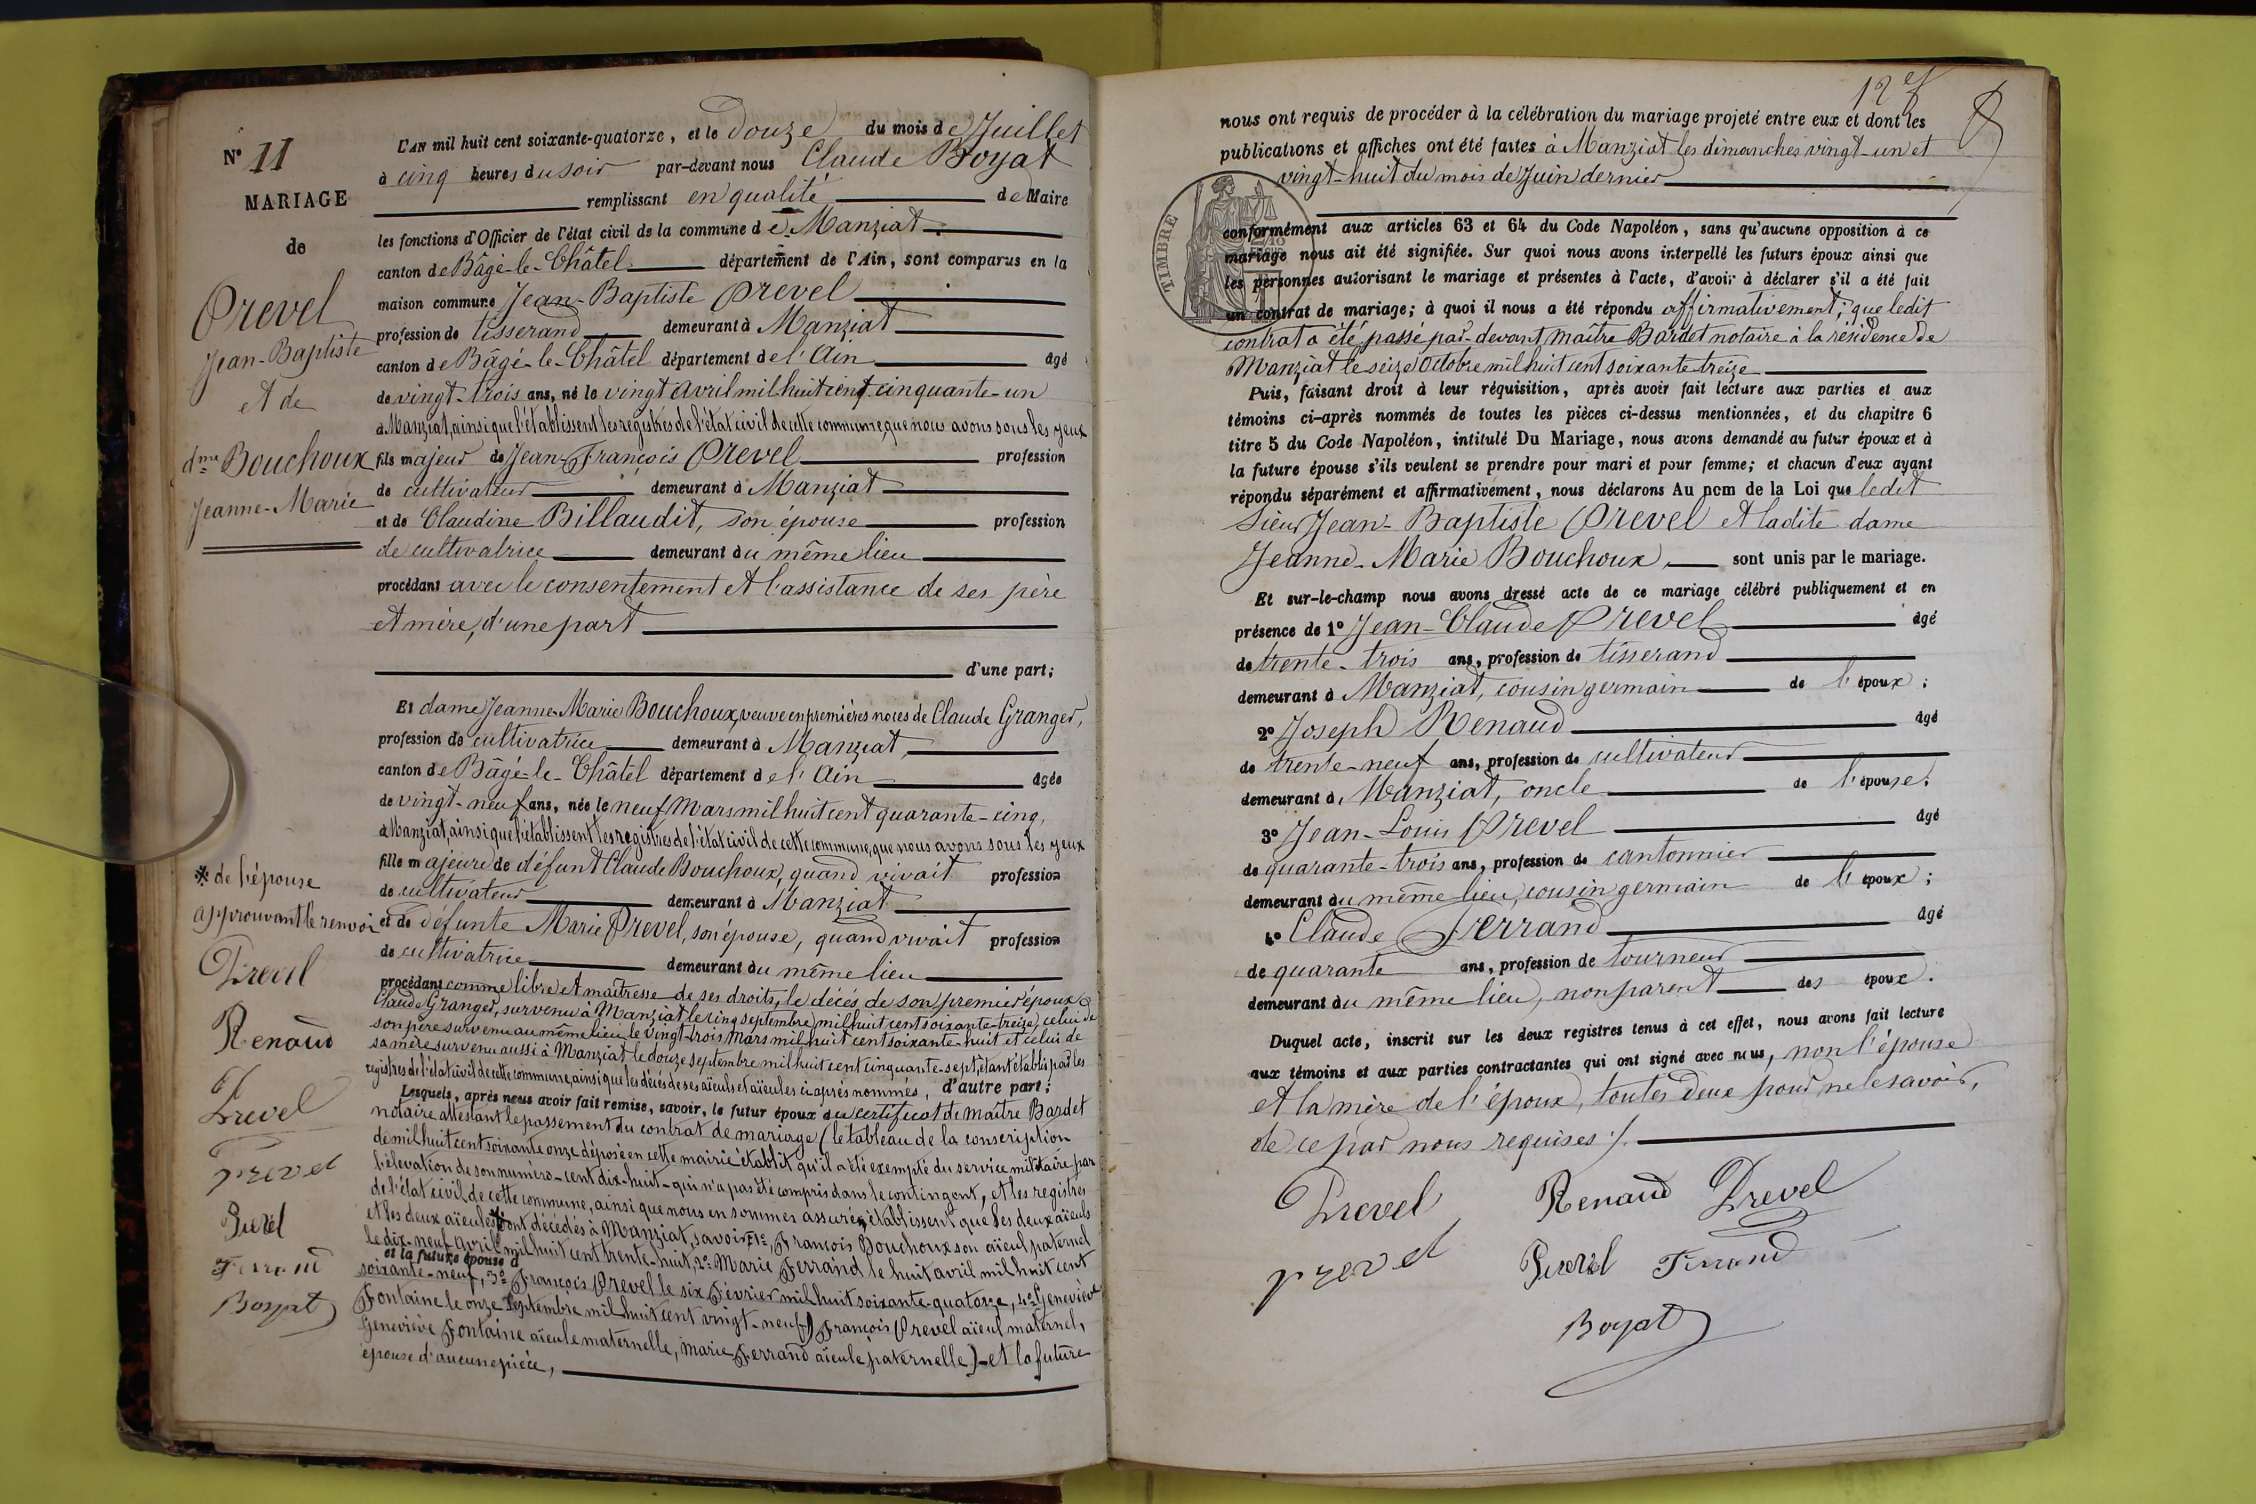 N° 11
MARIAGE
de
Prevel
Jean-Baptiste
et de
dme Bouchoux
Jeanne-Marie
L'AN mil huit cent soixante-quatorze, et le douze du mois de Juillet
à cinq heures du soir par-devant nous Claude Boyat
remplissant en qualité de Maire
les fonctions d'Officier de l'état civil de la commune de Manziat
canton de Bâgé-le-Châtel département de l'Ain, sont comparus en la
maison commune Jean-Baptiste Prevel
profession de tisserand demeurant à Manziat
canton de Bâgé-le-Châtel département de l'Ain âgé
de vingt-trois ans, né le vingt avril mil huit cent cinquante-un
à Manziat, ainsi que l'établissent les registres de l'état civil de cette commune, que nous avons sous les yeux
fils majeur de Jean-François Prevel profession
de cultivateur demeurant à Manziat
et de Claudine Billaudit, son épouse profession
de cultivatrice demeurant au même lieu
procédant avec le consentement et l'assistance de ses père
et mère, d'une part
d'une part;
Et dame Jeanne-Marie Bouchoux, veuve en premières noces de Claude Granger,
profession de cultivatrice demeurant à Manziat,
canton de Bâgé-le-Châtel département de l'Ain âgée
de vingt-neuf ans, née le neuf Mars mil huit cent quarante-cinq,
à Manziat, ainsi que l'établissent les registres de l'état civil de cette commune, que nous avons sous les yeux
fille majeure de défunt Claude Bouchoux, quand vivait profession
de cultivateur demeurant à Manziat
et de défunte Marie Prevel, son épouse, quand vivait profession
de cultivatrice demeurant au même lieu
procédant comme libre et maîtresse de ses droits, le décès de son premier époux
Claude Granger, survenu à Manziat le cinq septembre mil huit cent soixante-treize, celui de
son père survenu au même lieu le vingt-trois Mars mil huit cent soixante-huit et celui de
sa mère survenu aussi à Manziat le douze septembre mil huit cent cinquante-sept, étant établis par les
registres de l'état civil de cette commune, ainsi que les décès de ses aïeuls et aïeules ci après nommés, d'autre part;
Lesquels, après nous avoir fait remise, savoir, le futur époux du certificat de maître Bardet
notaire attestant le passement du contrat de mariage (le tableau de la conscription
de mil huit cent soixante onze déposé en cette mairie établit qu'il a été exempté du service militaire par
l'élevation de son numéro-cent dix-huit-qui n'a pas été compris dans le contingent, et les registres
de l'état civil de cette commune, ainsi que nous en sommes assurés, établissent que les deux aïeuls
et les deux aïeules * sont décédés à Manziat, savoir: 1°, François Bouchoux son aïeul paternel
le dix-neuf avril mil huit cent trente-huit, 2° Marie Ferrand le huit avril mil huit cent
et la future épouse d
soixante-neuf, 3° François Prevel le six Février mil huit soixante-quatorze, 4° Geneviève
Fontaine le onze Septembre mil huit cent vingt-neuf) François Prevel aïeul maternel,
Geneviève Fontaine aïeule maternelle, Marie Ferrand aïeule paternelle)-et la future
épouse d'aucune pièce,
* de l'épouse
approuvant le renvoi
Prevel
Renaud
Prevel
Prevel
Prevel
Ferrand
Boyat
12
nous ont requis de procéder à la célébration du mariage projeté entre eux et dont les
publications et affiches ont été faites à Manziat les dimanches vingt-un et
vingt-huit du mois de Juin dernier
TIMBRE
conformément aux articles 63 et 64 du Code Napoléon, sans qu'aucune opposition à ce
mariage nous ait été signifiée. Sur quoi nous avons interpellé les futurs époux ainsi que
les personnes autorisant le mariage et présentes à l'acte, d'avoir à déclarer s'il a été fait
un contrat de mariage; à quoi il nous a été répondu affirmativement; que ledit
contrat a été passé par-devant maître Bardet notaire à la résidence de
Manziat le seize Octobre mil huit cent soixante-treize
Puis, faisant droit à leur réquisition, après avoir fait lecture aux parties et aux
témoins ci-après nommés de toutes les pièces ci-dessus mentionnées, et du chapitre 6
titre 5 du Code Napoléon, intitulé Du Mariage, nous avons demandé au futur époux et à
la future épouse s'ils veulent se prendre pour mari et pour femme; et chacun d'eux ayant
répondu séparément et affirmativement, nous déclarons Au nom de la Loi que ledit
Sieur Jean-Baptiste Prevel et ladite dame
Jeanne-Marie Bouchoux, sont unis par le mariage.
Et sur-le-champ nous avons dressé acte de ce mariage célébré publiquement et en
présence de 1° Jean-Claude Prevel âgé
de trente-trois ans, profession de tisserand
demeurant à Manziat, cousin germain de l'époux;
2° Joseph Renaud âgé
de trente-neuf ans, profession de cultivateur
demeurant à Manziat, oncle de l'épouse;
3° Jean-Louis Prevel âgé
de quarante-trois ans, profession de cantonnier
demeurant au même lieu, cousin germain de l'époux;
4° Claude Ferrand âgé
de quarante ans, profession de tourneur
demeurant au même lieu, non parent des époux.
Duquel acte, inscrit sur les deux registres tenus à cet effet, nous avons fait lecture
aux témoins et aux parties contractantes qui ont signé avec nous, non l'épouse
et la mère de l'époux, toutes deux pour ne le savoir,
de ce par nous requises ./.
Prevel Renaud Prevel
Prevel Prevel Ferrand
Boyat